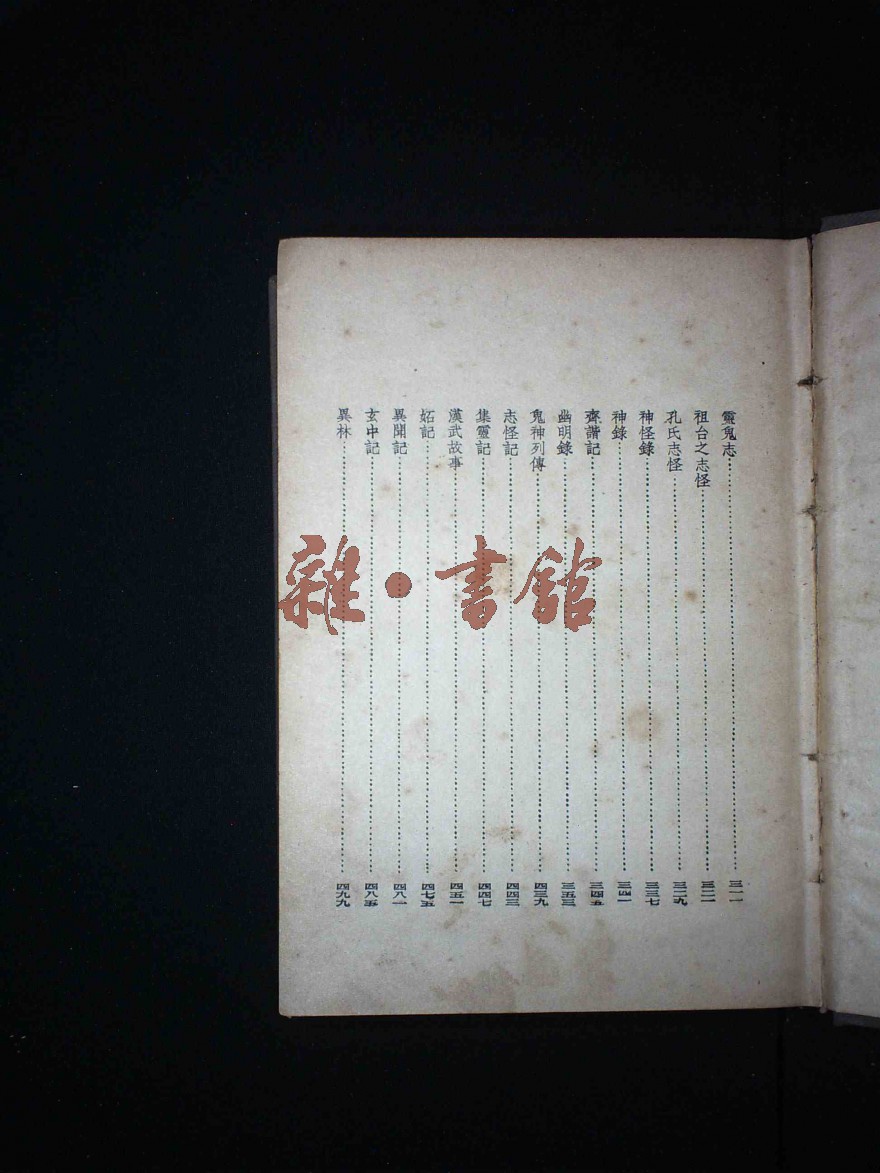 靈鬼志 三一一
祖台之志怪 三二一
孔氏志怪 三二九
神怪錄 三三七
神錄 三四一
齊諧記 三四五
幽明錄 三五三
鬼神列傳 四三九
志怪記 四四三
集靈記 四四七
漢武故事 四五一
妬記 四七五
異聞記 四八一
玄中記 四八五
異林 四九九
雜·書館